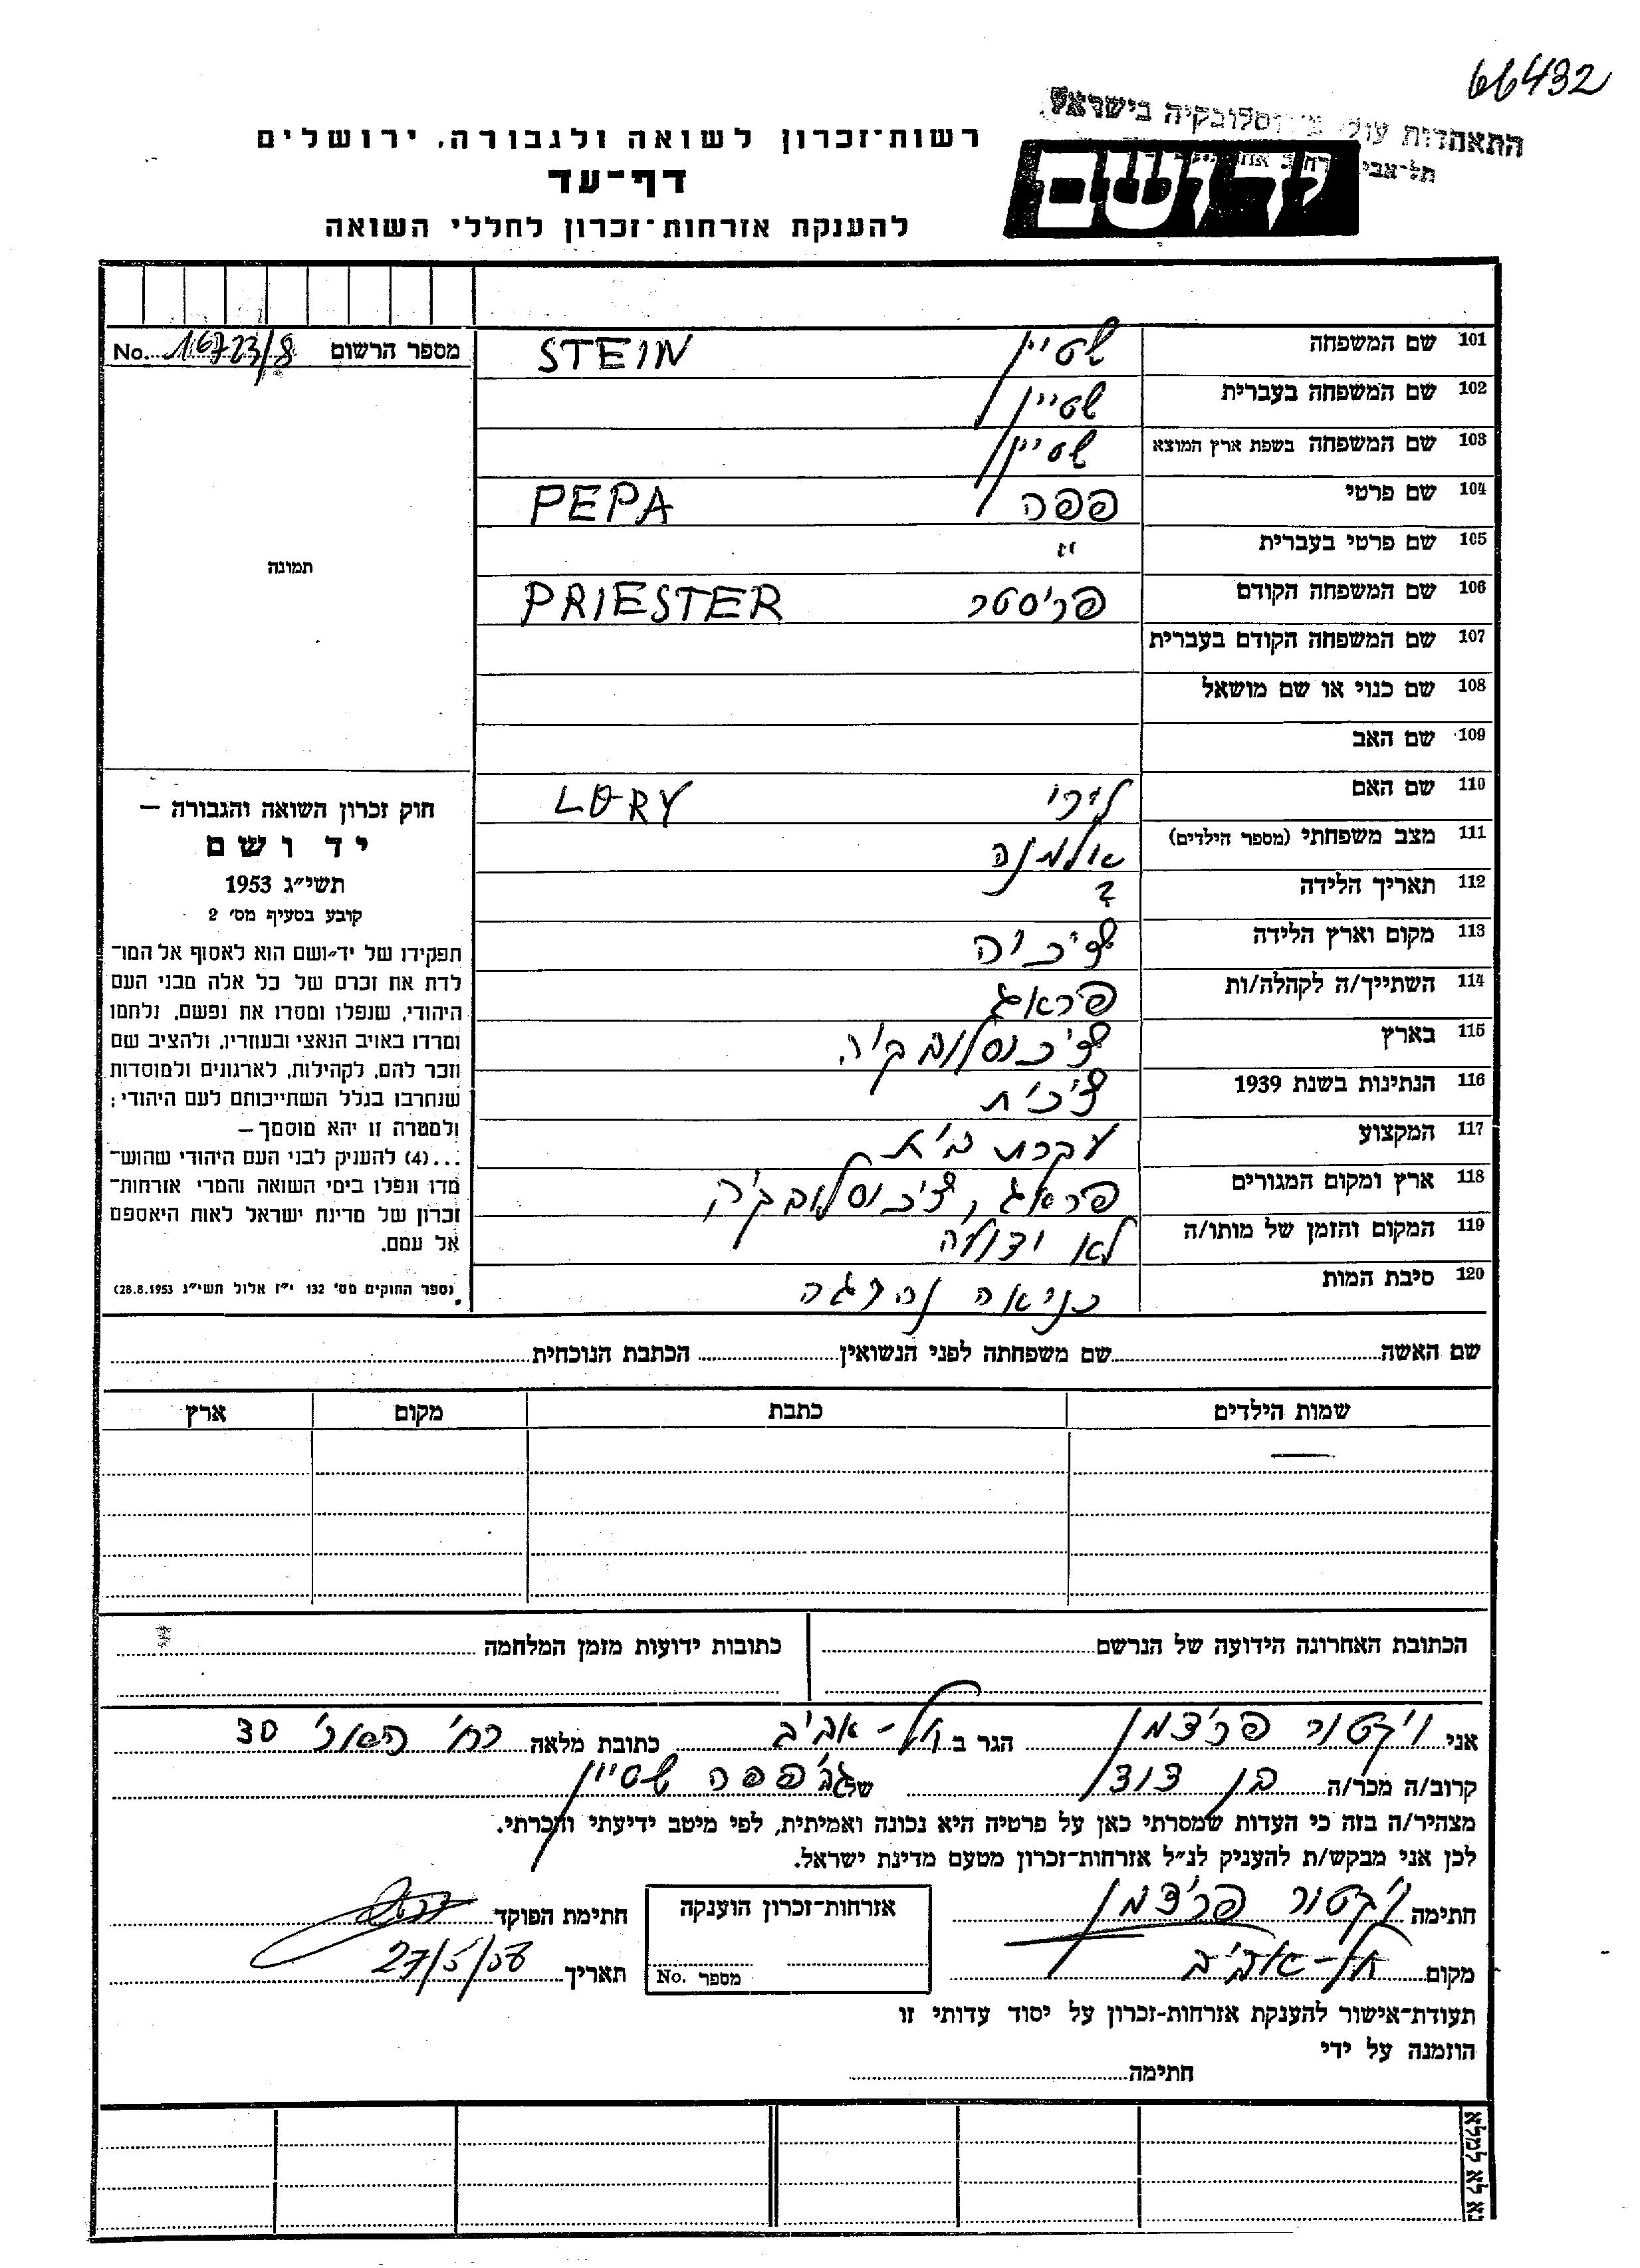 66432
התאחדות עולי צ׳וסלובקיה בישראל
תל-אביב
רשות־זכרון לשואה ולגבורה, ירושלים
דף־עד
להענקת אזרחות־זכרון לחללי השואה
יד ושם
מספר הרשום No. 16723/8
תמונה
101 שם המשפחה שטיין STEIN
102 שם המשפחה בעברית שטיין
103 שם המשפחה בשפת ארץ המוצא שטיין
104 שם פרטי פפה PEPA
105 שם פרטי בעברית "
106 שם המשפחה הקודם פריסטר PRIESTER
107 שם המשפחה הקודם בעברית
108 שם כנוי או שם מושאל
109 שם האב
110 שם האם לירי LERY
111 מצב משפחתי (מספר הילדים) אלמנה
112 תאריך הלידה ?
113 מקום וארץ הלידה צ'כיה
114 השתייך/ה לקהלה/ות פראג
115 בארץ צ'כוסלובקיה
116 הנתינות בשנת 1939 צ'כית
117 המקצוע עקרת בית
118 ארץ ומקום המגורים פראג, צ'כוסלובקיה
119 המקום והזמן של מותו/ה לא ידוע
120 סיבת המות
חוק זכרון השואה והגבורה —
יד ושם
תשי״ג 1953
קובע בסעיף מס׳ 2
תפקידו של יד־ושם הוא לאסוף אל המו־
לדת את זכרם של כל אלה מבני העם
היהודי, שנפלו ומסרו את נפשם, נלחמו
ומרדו באויב הנאצי ובעוזריו, ולהציב שם
וזכר להם, לקהילות, לארגונים ולמוסדות
שנחרבו בגלל השתייכותם לעם היהודי;
ולמטרה זו יהא מוסמך —
...(4) להעניק לבני העם היהודי שהוש־
מדו ונפלו בימי השואה והמרי אזרחות־
זכרון של מדינת ישראל לאות היאספם
אל עמם.
(ספר החוקים מס׳ 132 י״ז אלול תשי״ג 28.8.1953)
שם האשה שם משפחתה לפני הנשואין הכתבת הנוכחית
שמות הילדים כתבת מקום ארץ
—
הכתובת האחרונה הידועה של הנרשם כתובות ידועות מזמן המלחמה
אני ויקטור פריצמן הגר ב תל-אביב כתובת מלאה רח' 30
קרוב/ה מכר/ה בן דוד של גב' פפה שטיין
מצהיר/ה בזה כי העדות שמסרתי כאן על פרטיה היא נכונה ואמיתית, לפי מיטב ידיעתי והכרתי.
לכן אני מבקש/ת להעניק לנ״ל אזרחות־זכרון מטעם מדינת ישראל.
חתימה ויקטור פריצמן אזרחות־זכרון הוענקה חתימת הפוקד
מקום תל-אביב מספר No. תאריך 27/5/58
תעודת־אישור להענקת אזרחות-זכרון על יסוד עדותי זו
הוזמנה על ידי
חתימה
נא לא למלא